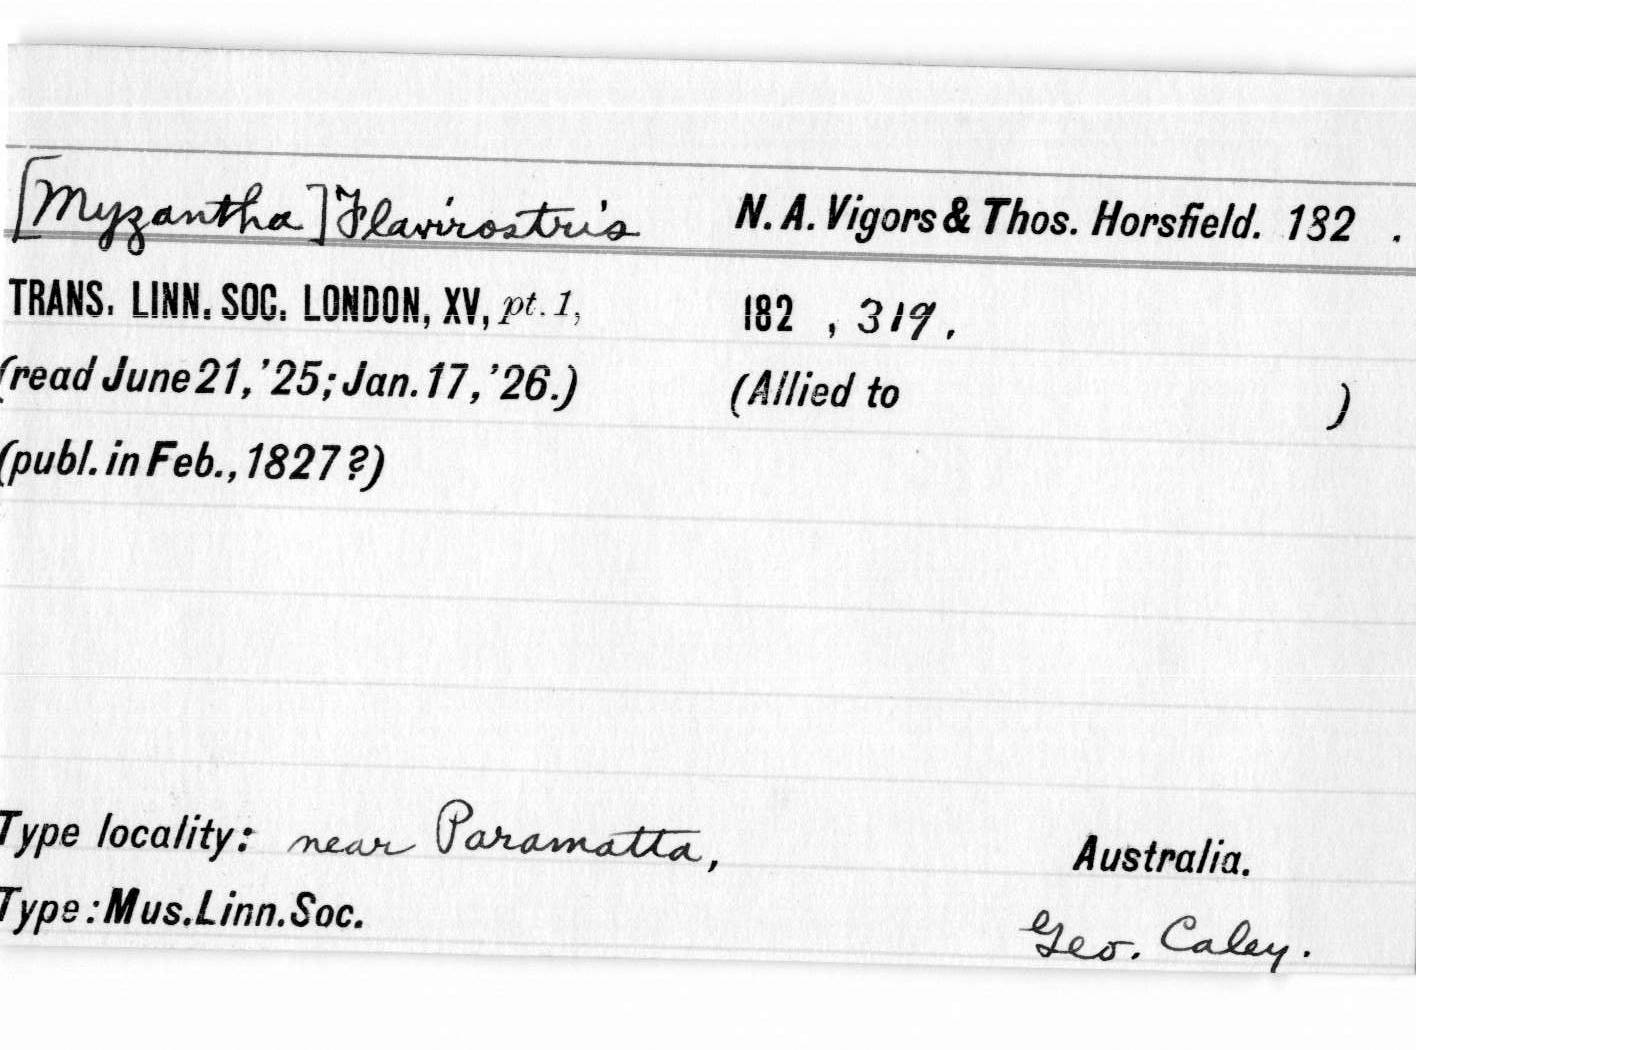 [Myzantha] Flavirostris N. A. Vigors & Thos. Horsfield. 182 .
TRANS. LINN. SOC. LONDON, XV, pt. 1, 182 , 319.
(read June 21, '25; Jan. 17, '26.) (Allied to )
(publ. in Feb., 1827?)
Type locality: near Paramatta, Australia.
Type: Mus. Linn. Soc. Geo. Caley.